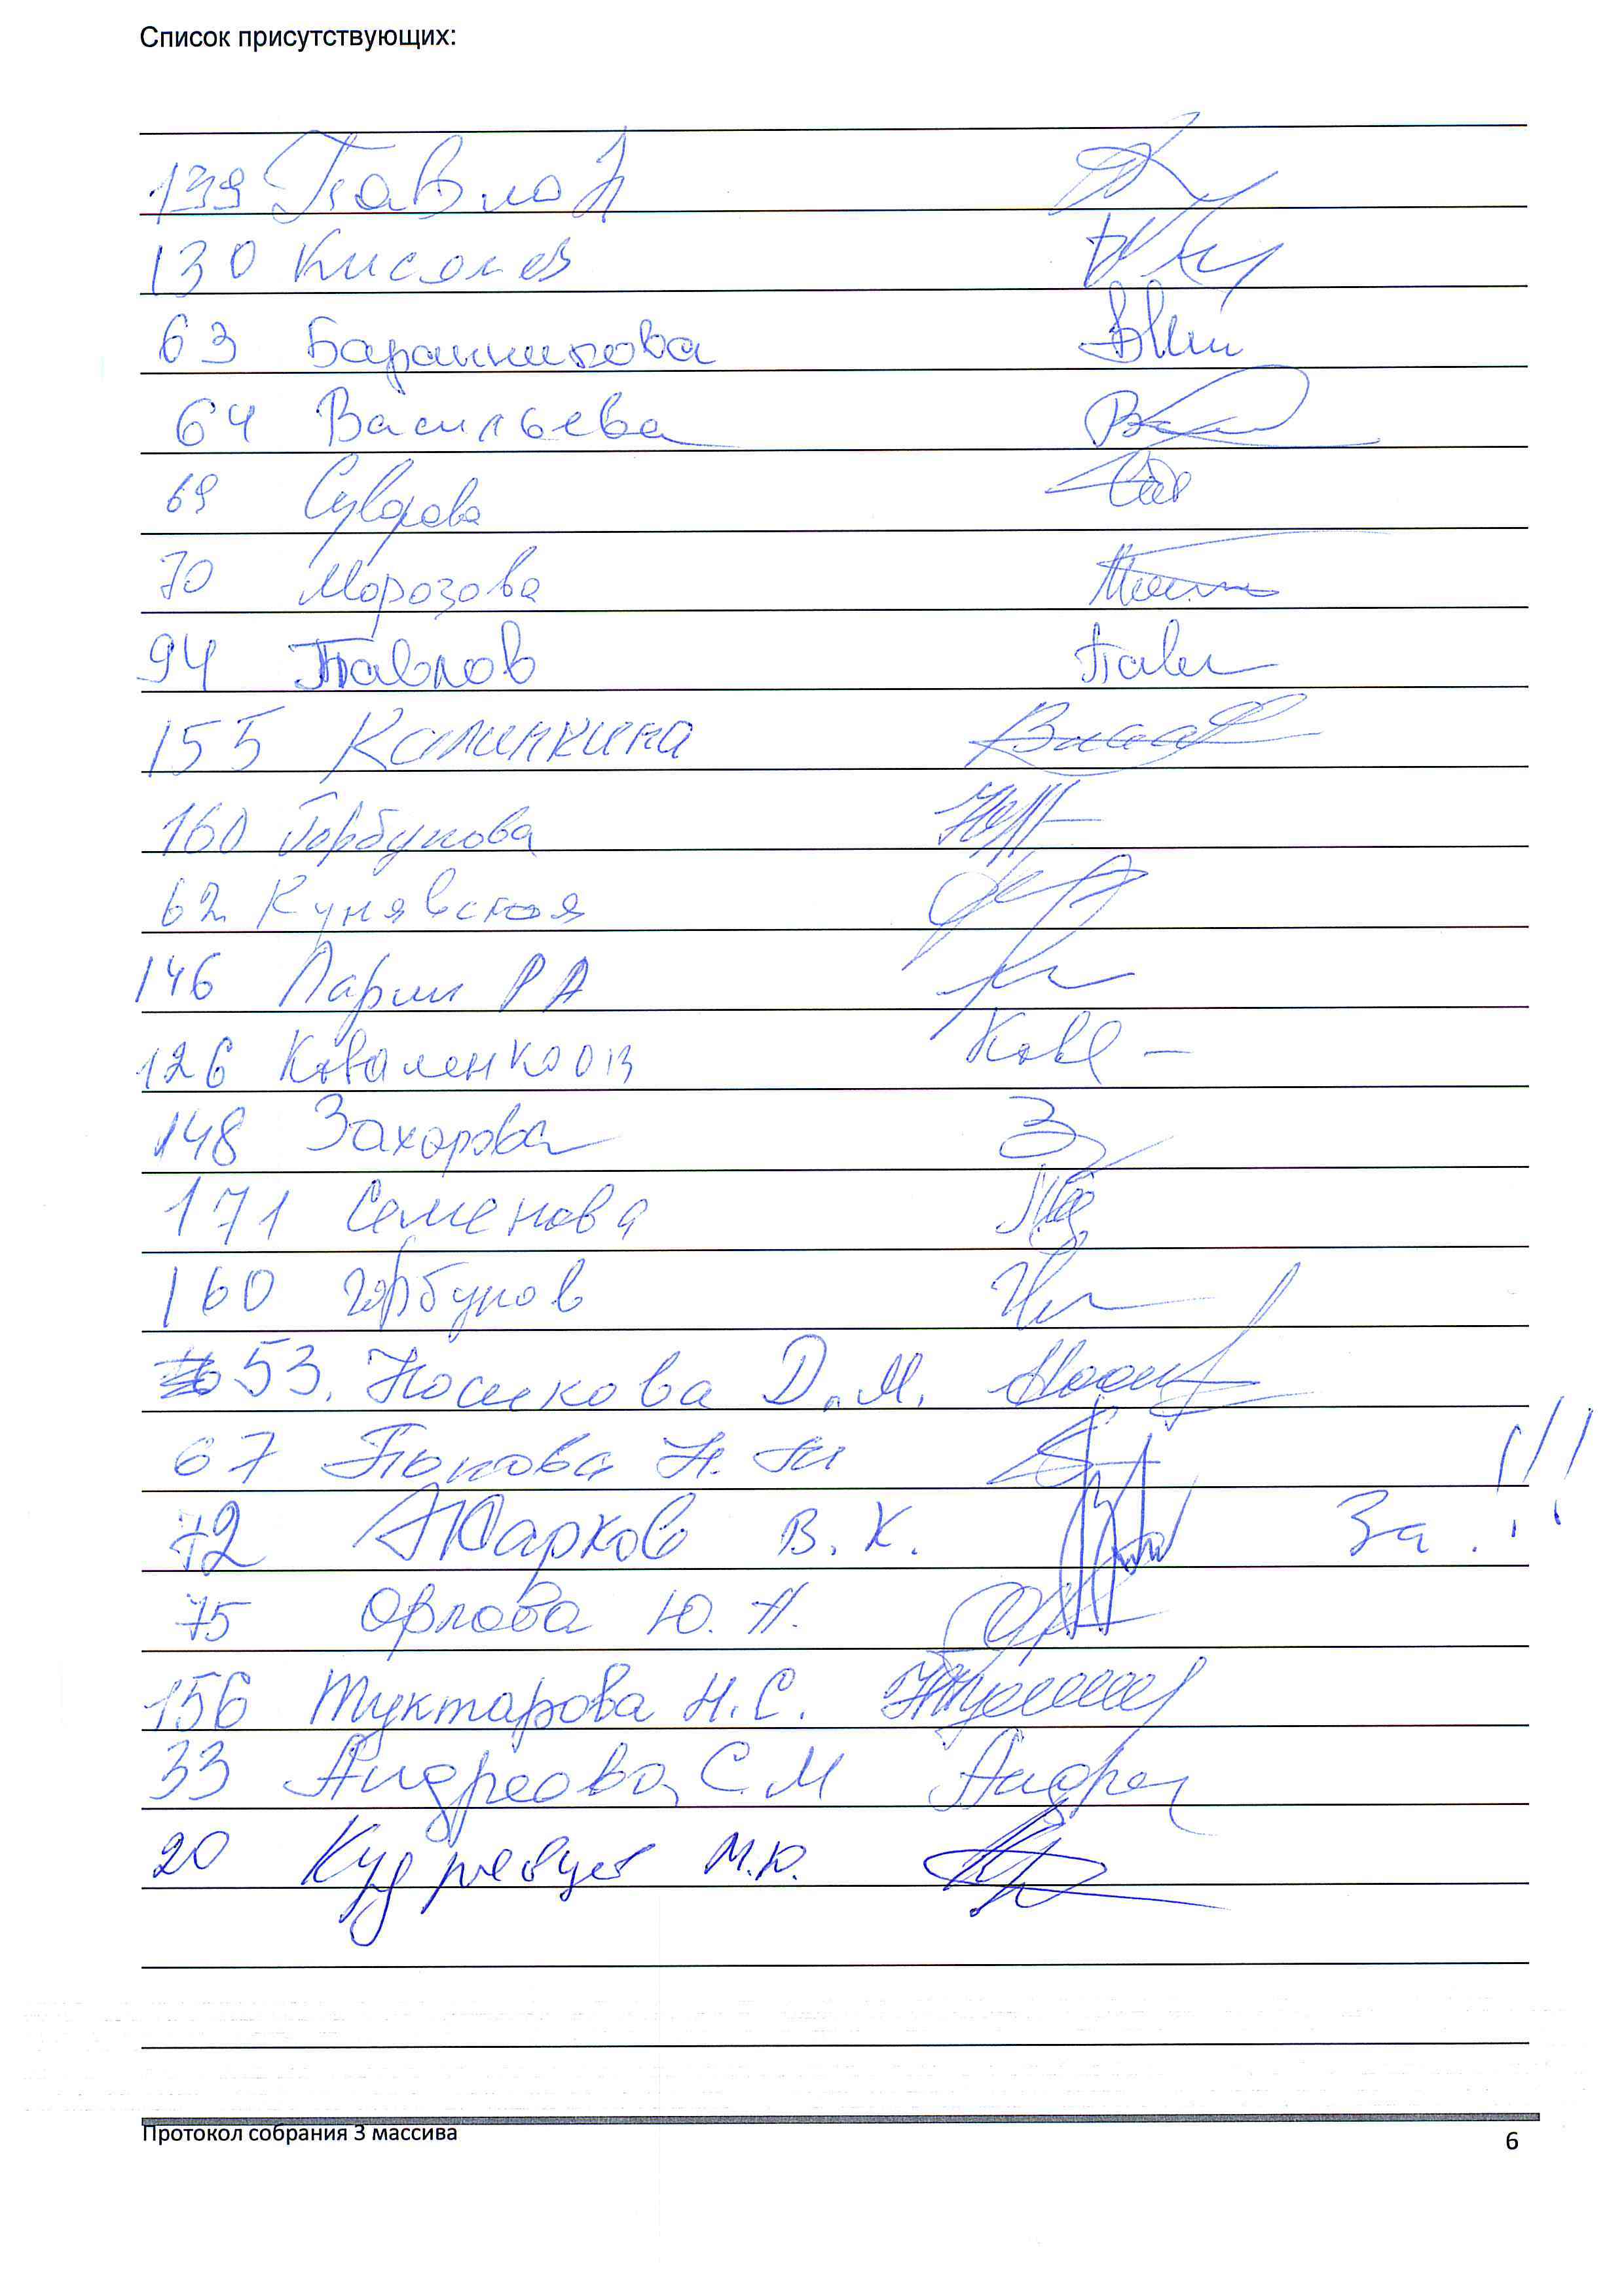 Список присутствующих:
139
130 Киселев
63 Баранникова
64 Васильева
69 Суворова
70 Морозова
94 Павлов Павл
155 Калинкина
160 Горбунова
62 Кунявская
146 Ларин РА
126 Коваленко ОВ Ковл
148 Захарова З
171 Семенова
160 Горбунов
53. Носикова Д.М.
67 Попова Н.
72 Жарков В.К. За!!!
75 Орлова Ю.А.
156 Туктарова Н.С.
33 Андреева С.М Андре
20 М.Ю.
Протокол собрания 3 массива
6